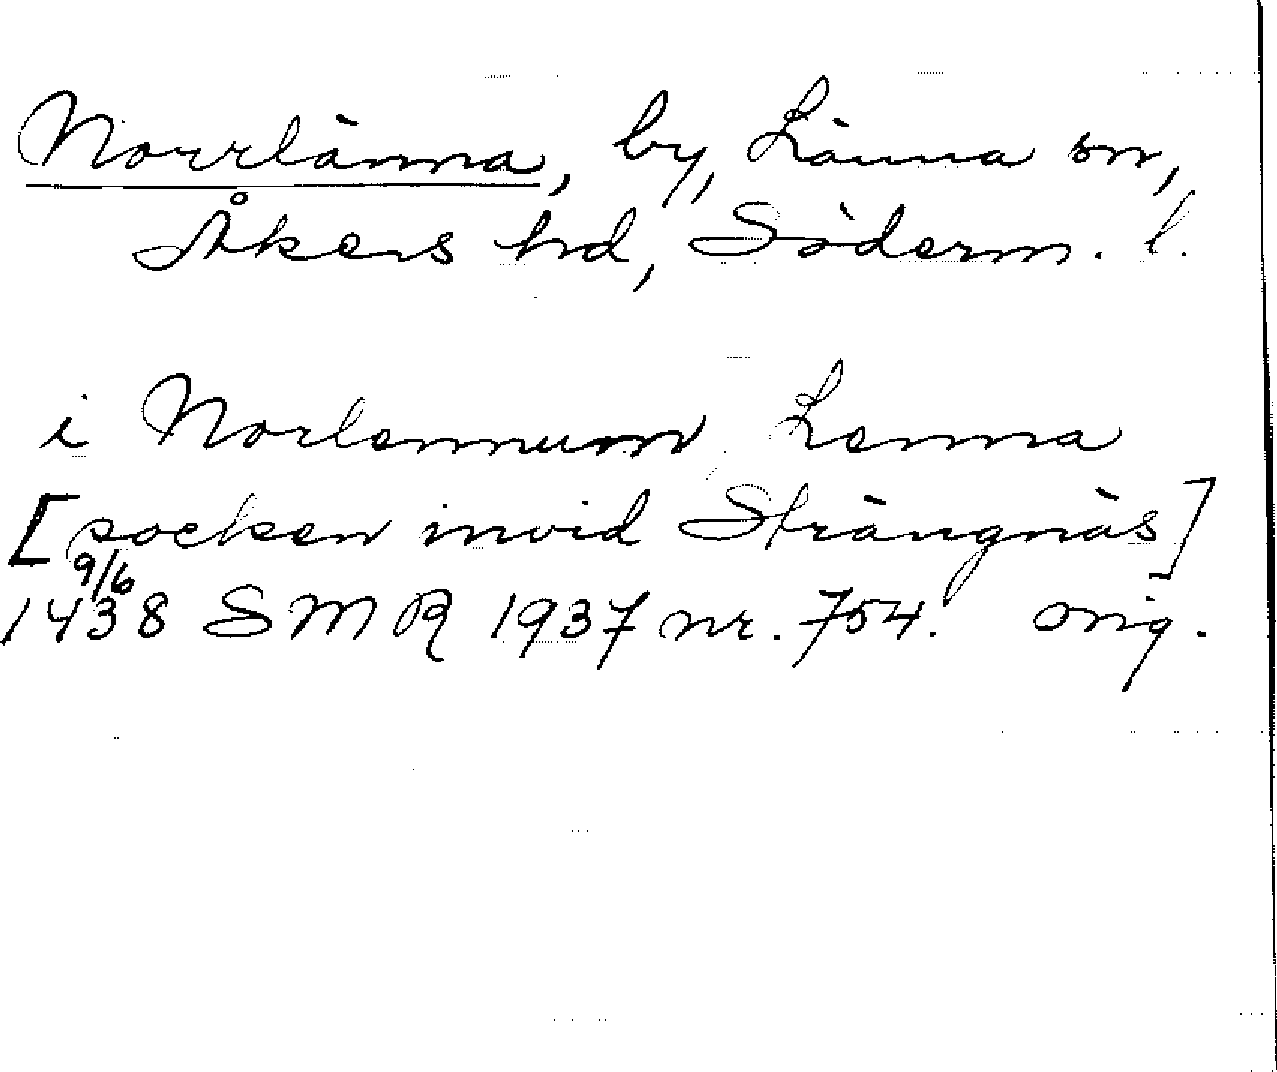 Norrlänna, by, Länna sn,
Åkers hd, Söderm. l.
i Norlennum, Lenna
[socken invid Strängnäs]
9/6
1438 SMR 1937 nr. 754. orig.